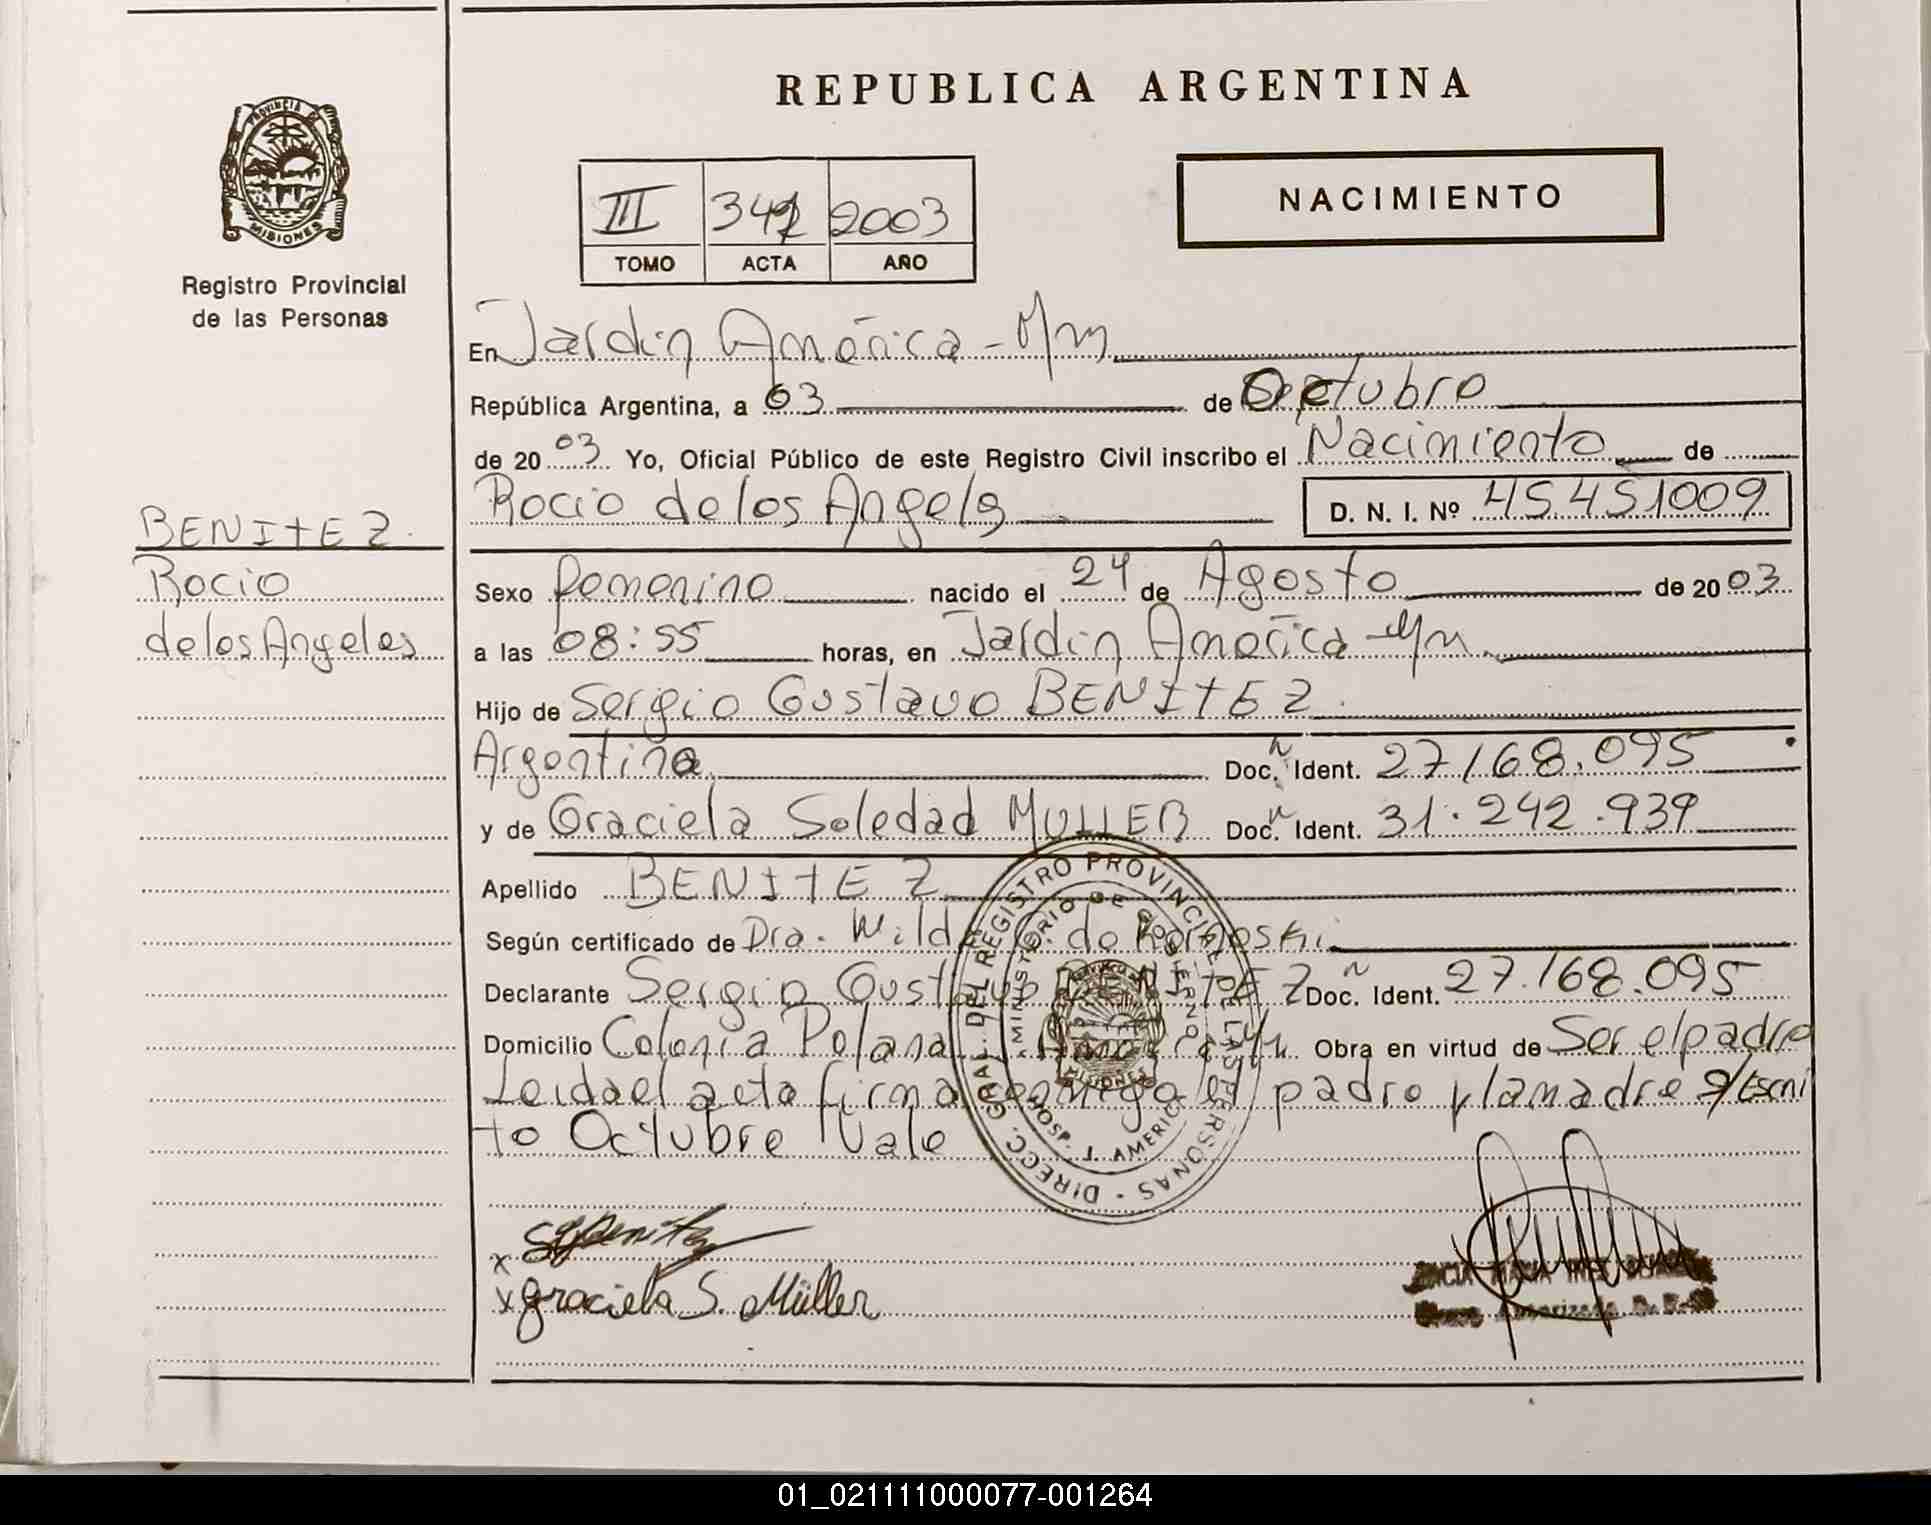 REPUBLICA ARGENTINA
PROVINCIA DE
MISIONES
Registro Provincial
de las Personas
III 2003
TOMO ACTA AÑO
NACIMIENTO
En Jardín América - Mnes
República Argentina, a 03 de Octubre
de 2003 Yo, Oficial Público de este Registro Civil inscribo el Nacimiento de
Rocio de los Angeles D. N. I. Nº 45.451009
BENITEZ
Rocio
de los Angeles
Sexo femenino nacido el 24 de Agosto de 2003
a las 08:55 horas, en Jardín América Mnes
Hijo de Sergio Gustavo BENITEZ
Argentina Doc. Ident. 27.168.095
y de Graciela Soledad MULLER Doc. Ident. 31.242.939
Apellido BENITEZ
Según certificado de Dra. de
Declarante Sergio Gustavo BENITEZ Doc. Ident. 27.168.095
Domicilio Colonia Polana Obra en virtud de Ser el padre
Leida el acta firma conmigo el padre y la madre s/Escri
to Octubre Vale
DIRECC. GRAL. DEL REGISTRO PROVINCIAL DE LAS PERSONAS
MINISTERIO DE GOBIERNO
HOSP. J. AMERICA
MISIONES
x SGBenitez
x Graciela S. Müller
01_021111000077-001264